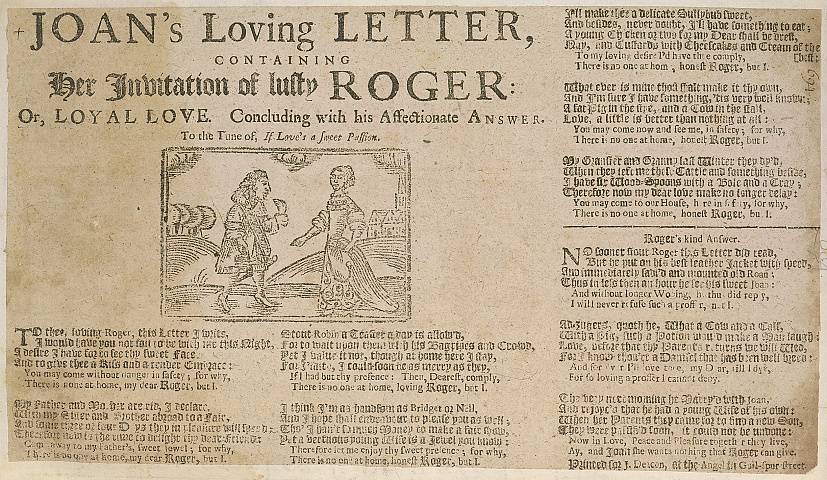 JOAN's Loving LETTER,
CONTAINING
Her Invitation of lusty ROGER:
Or, LOYAL LOVE. Concluding with his Affectionate ANSWER.
To the Tune of, If Love's a sweet Passion.
TO thee, loving Roger, this Letter I write,
I would have you not fail to be with me this Night,
A desire I have for to see thy sweet Face,
And to give thee a Kiss and a tender Embrace:
You may come without danger in safety; for why,
There is none at home, my dear Roger, but I.
My Father and Mother are rid, I declare,
With my Sister and Brother abroad to a Fair,
And some three or four Days they in pleasure will spend:
Therefore now is the time to delight thy dear Friend:
Come away to my Father's, sweet jewel; for why,
There is no one at home, my dear Roger, but I.
Stout Robin a Teaster a day is allow'd,
For to wait upon them with his Bagpipes and Crowd,
Yet I value it not, though at home here I stay,
For I could soon be as merry as they,
If I had but thy presence: Then, Dearest, comply,
There is no one at home, loving Roger, but I.
I think I'm as handsom as Bridget or Nell,
And I hope shall endeavour to please you as well;
Tho' I don't Labour Money to make a fine show,
Yet a vertuous young Wife is a Jewel you know:
Therefore let me enjoy thy sweet presence; for why,
There is no one at home, honest Roger, but I.
I'll make thee a delicate Sullybub sweet,
And besides, never doubt, I'll have something to eat;
A young Chicken or two for my Dear shall be drest,
Nay, and Custards with Cheescakes and Cream of the
(best:
To my loving desire I'd have thee comply,
There is no one at home, honest Roger, but I.
What ever is mine thou shalt make it thy own,
And I'm sure I have something, 'tis very well known;
A fat Pig in the stye, and a Cow in the stall,
Love, a little is better than nothing at all:
You may come now and see me, in safety; for why,
There is no one at home, honest Roger, but I.
My Gransier and Granny last Winter they dy'd,
When they left me their Cattle and something beside,
I have six Wood-Spoons with a Bole and a Tray;
Therefore now my dear love make no longer delay:
You may come to our House, here in safety, for why,
There is no one at home, honest Roger, but I.
Roger's kind Answer.
NO sooner stout Roger this Letter did read,
But he put on his best leather Jacket with speed,
And immediately sadl'd and mounted old Roan;
Thus in less then an hour he see his sweet Joan:
And without longer Wooing, he thus did reply,
I will never refuse such a proffer, not I.
Adzingers, quoth he, What a Cow and a Calf,
With a Pig, such a Potion would make a Man laugh:
Love, before that thy Parents returns we will Wed,
For I know thou'rt a Damsel that has been well breed:
And for ever I'll love thee, my Dear, till I dye,
For so loving a proffer I cannot deny.
The very next morning he Marry'd with Joan,
And rejoyc'd that he had a young Wife of his own:
When her Parents they came too to find a new Son,
They were pleased soon, it could not be undone:
Now in Love, Peace and Pleasure together they live,
Ay, and Joan she wants nothing that Roger can give.
Printed for J. Deacon, at the Angel in Guil-spur-street.